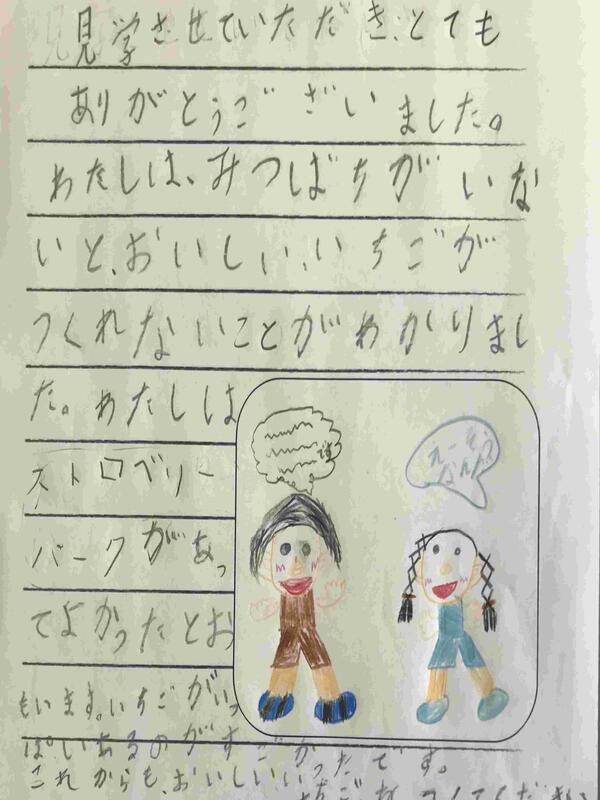 見学させていただき、とても
ありがとうございました。
わたしは、みつばちがいな
いと、おいしい、いちごが
つくれないことがわかりまし
た。わたしは
ストロベリー
パークがあっ
てよかったとお
もいます。いちごがいっ
ぱいあるのがすごかったです。
これからも、おいしいい
ちごをつくってください
えーそう
なんだ